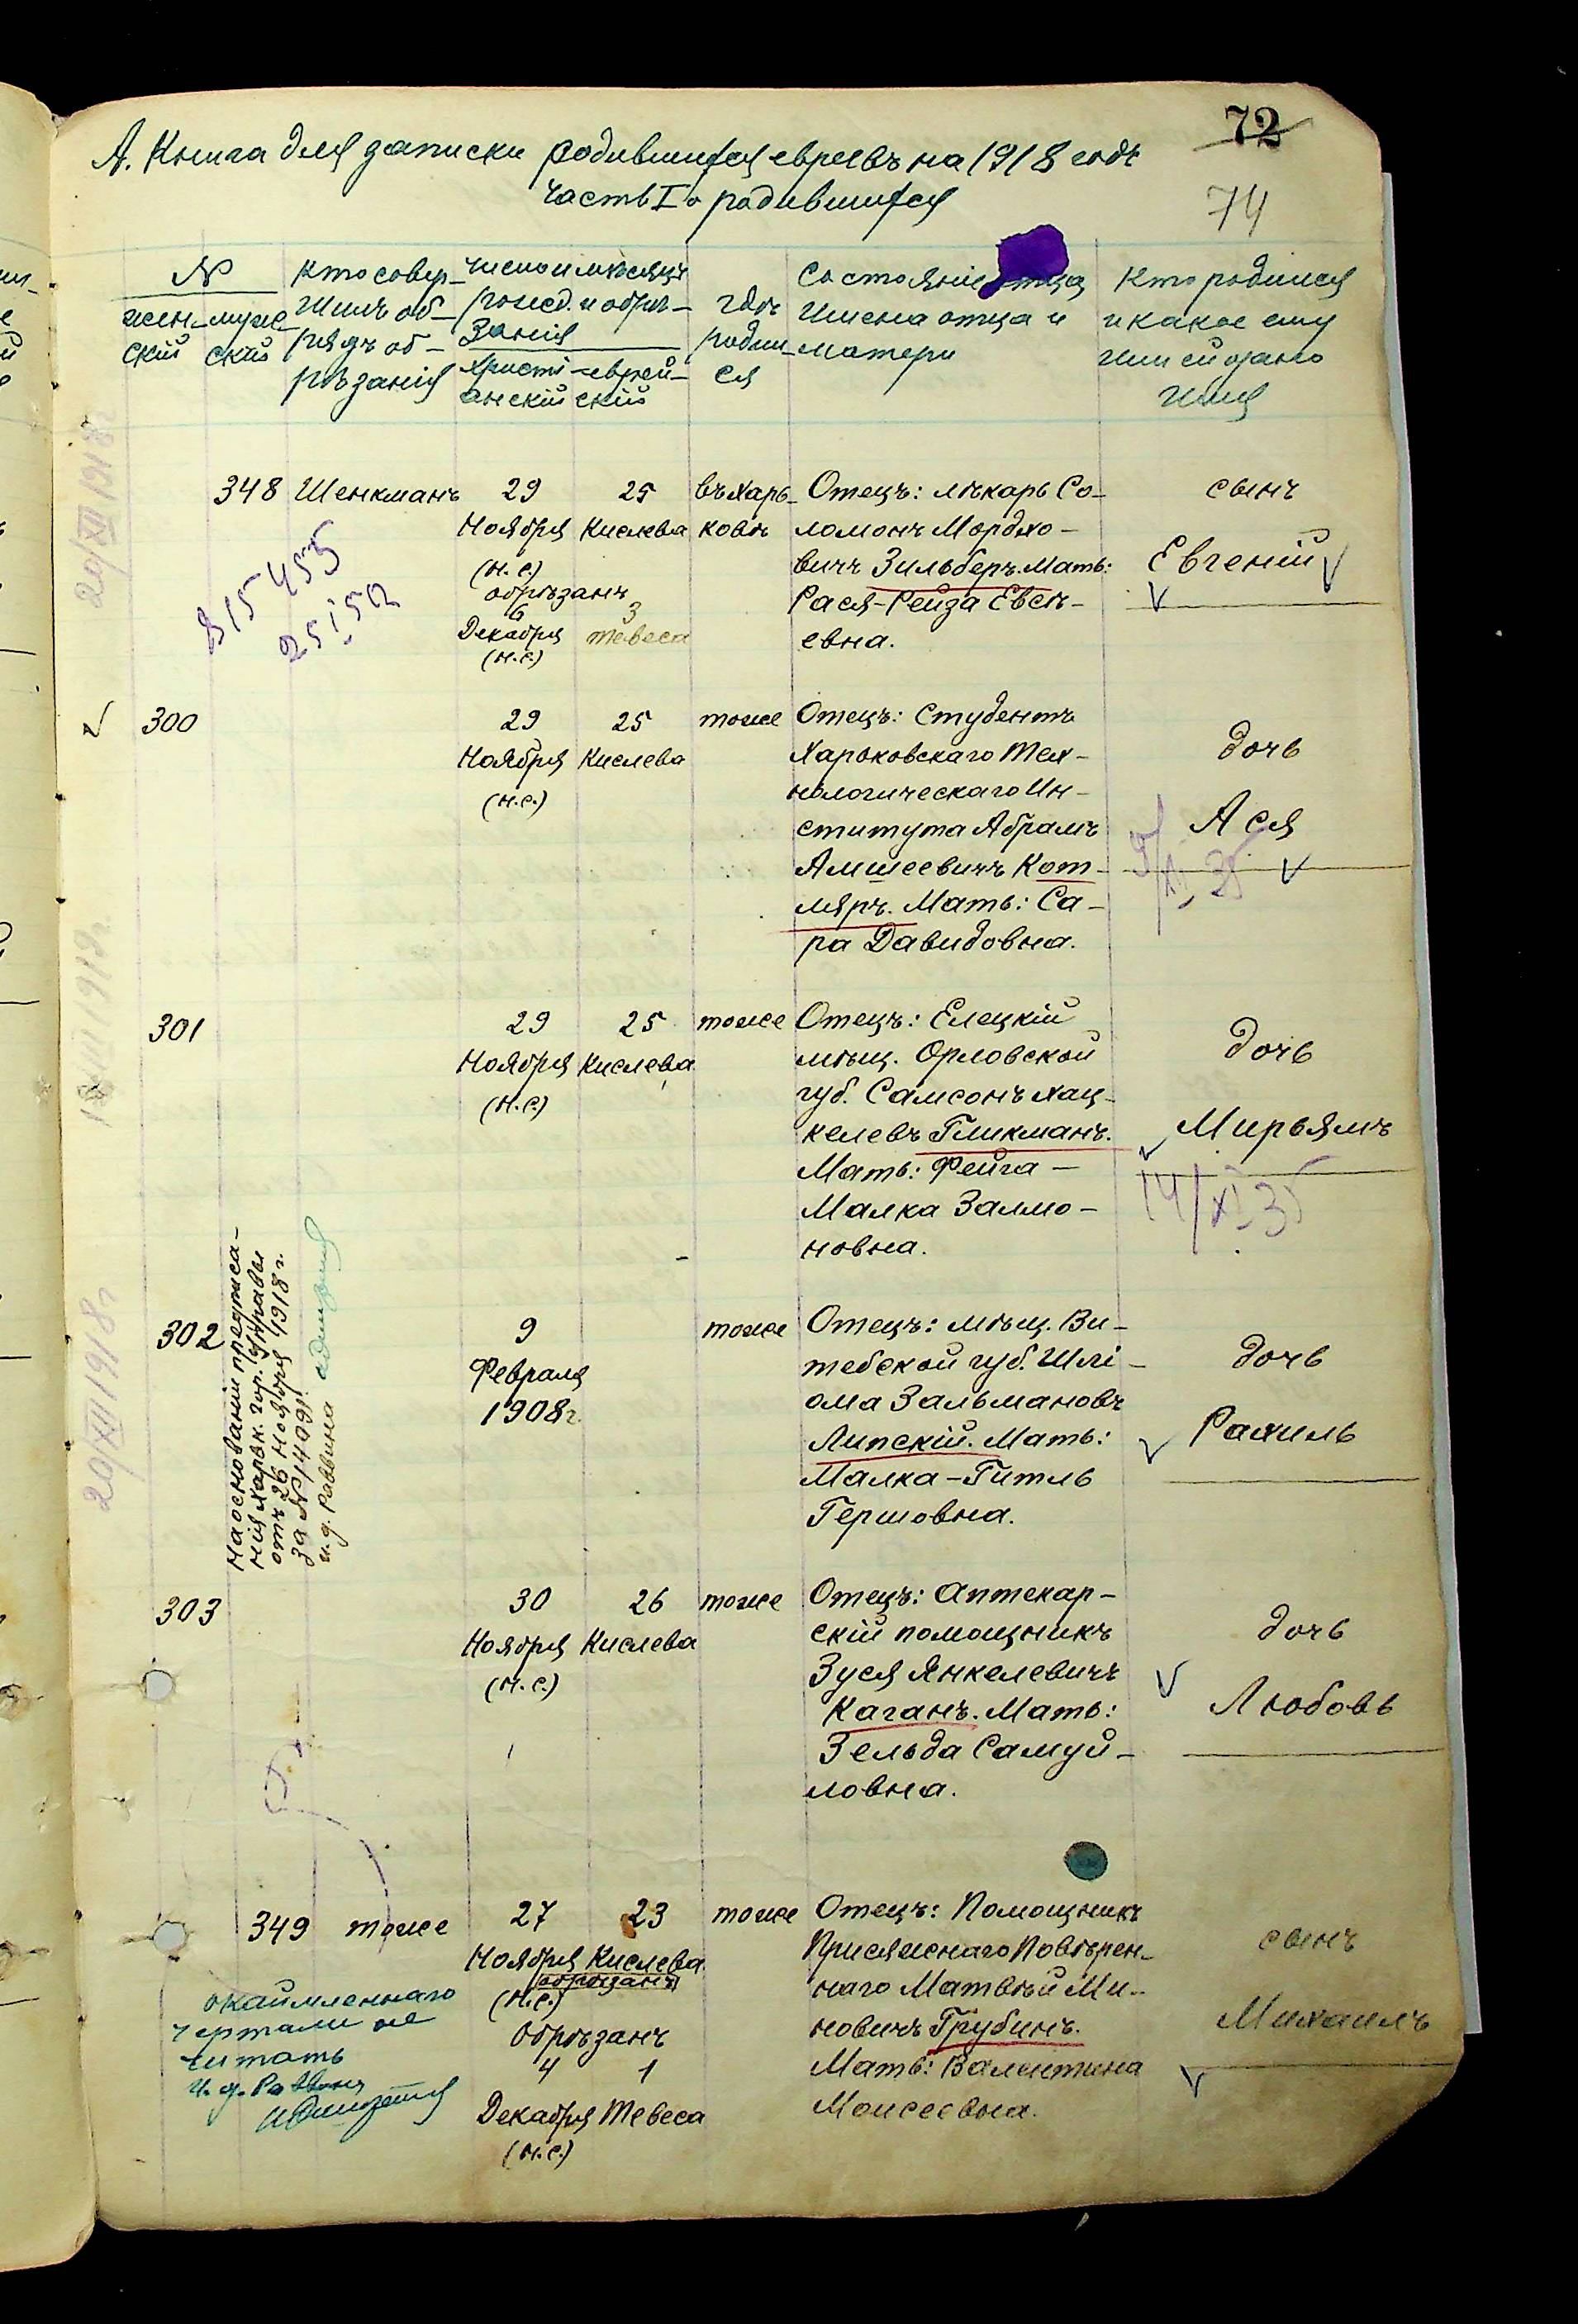 72
А. Книга для записки родившихся евреевъ на 1918 годъ
74
часть I о родившихся
№
жен- муже-
скій скій
Кто совер-
шилъ об-
рядъ об-
рѣзанія
Число и мѣсяцъ
рожд. и обрѣ-
занія
Христі- еврей-
анскій скій
Гдѣ
родил-
ся
Состояніе отца
имена отца и
матери
Кто родился
и какое ему
или ей дано
имя
348 Шенкманъ
29
Ноября
(н.с.)
обрѣзанъ
6
Декабря
(н.с.)
25
Кислева
3
Тевеса
въ Харь-
ковѣ
Отецъ: лѣкарь Со-
ломонъ Мордхо-
вичъ Зильберъ. Мать:
Рася-Рейза Евсѣ-
евна.
сынъ
Евгеній
20/XII 1918
300
29
Ноября
(н.с.)
25
Кислева
тоже
Отецъ: Студентъ
Харьковскаго Тех-
нологическаго Ин-
ститута Абрамъ
Амшеевичъ Кот-
ляръ. Мать: Са-
ра Давидовна.
дочь
Ася
301
29
Ноября
(н.с.)
25
Кислева
тоже
Отецъ: Елецкій
мѣщ. Орловской
губ. Самсонъ Хац-
келевъ Гликманъ.
Мать: Фейга-
Малка Залмо-
новна.
дочь
Мирьямъ
14/XI 35
302
На основаніи предписа-
нія Харьк. гор. Управы
отъ 26 Ноября 1918 г.
за № 14991
и.д. Раввина
9
Февраля
1908 г.
тоже
Отецъ: мѣщ. Ви-
тебской губ. Шлі-
ома Зальмановъ
Липскій. Мать:
Малка-Гитль
Гершовна.
дочь
Рахиль
20/XII 1918 г
303
30
Ноября
(н.с.)
26
Кислева
тоже
Отецъ: Аптекар-
скій помощникъ
Зуся Янкелевичъ
Каганъ. Мать:
Зельда Самуй-
ловна.
дочь
Любовь
349 тоже
27
Ноября
(н.с.)
23
Кислева
обрѣзанъ
Обрѣзанъ
4 1
Декабря Тевеса
(н.с.)
тоже
Отецъ: Помощникъ
Присяжнаго Повѣрен-
наго Матвѣй Ми-
новичъ Грубинъ.
Мать: Валентина
Моисеевна.
сынъ
Михаилъ
окаймленнаго
чертами не
читать
И. д. Раввина